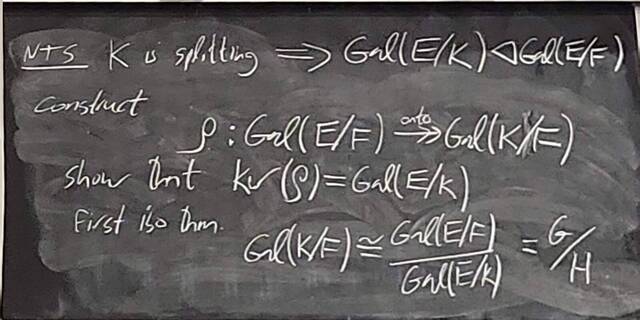 NTS K is splitting ⟹ Gal(E/K) ◁ Gal(E/F)
Construct
ρ : Gal(E/F) onto ↠ Gal(K/F)
show that ker(ρ) = Gal(E/K)
First iso thm.
Gal(K/F) ≅ Gal(E/F) / Gal(E/K) = G/H